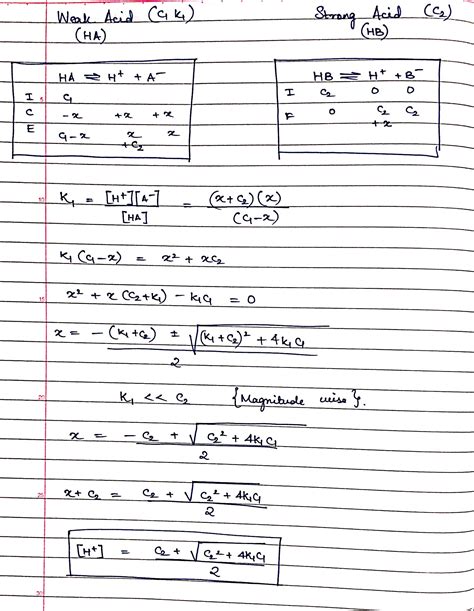 Weak Acid (C₁ K₁)
(HA)
Strong Acid (C₂)
(HB)
HA ⇌ H⁺ + A⁻
I C₁
C -x +x +x
E C₁-x x x
+C₂
HB ⇌ H⁺ + B⁻
I C₂ 0 0
F 0 C₂ C₂
+x
K₁ = [H⁺][A⁻] / [HA] = (x+C₂)(x) / (C₁-x)
K₁(C₁-x) = x² + xC₂
x² + x(C₂+K₁) - K₁C₁ = 0
x = -(K₁+C₂) ± √((K₁+C₂)² + 4K₁C₁) / 2
K₁ << C₂ {Magnitude wise}.
x = -C₂ + √(C₂² + 4K₁C₁) / 2
x+C₂ = C₂ + √(C₂² + 4K₁C₁) / 2
[H⁺] = C₂ + √(C₂² + 4K₁C₁) / 2